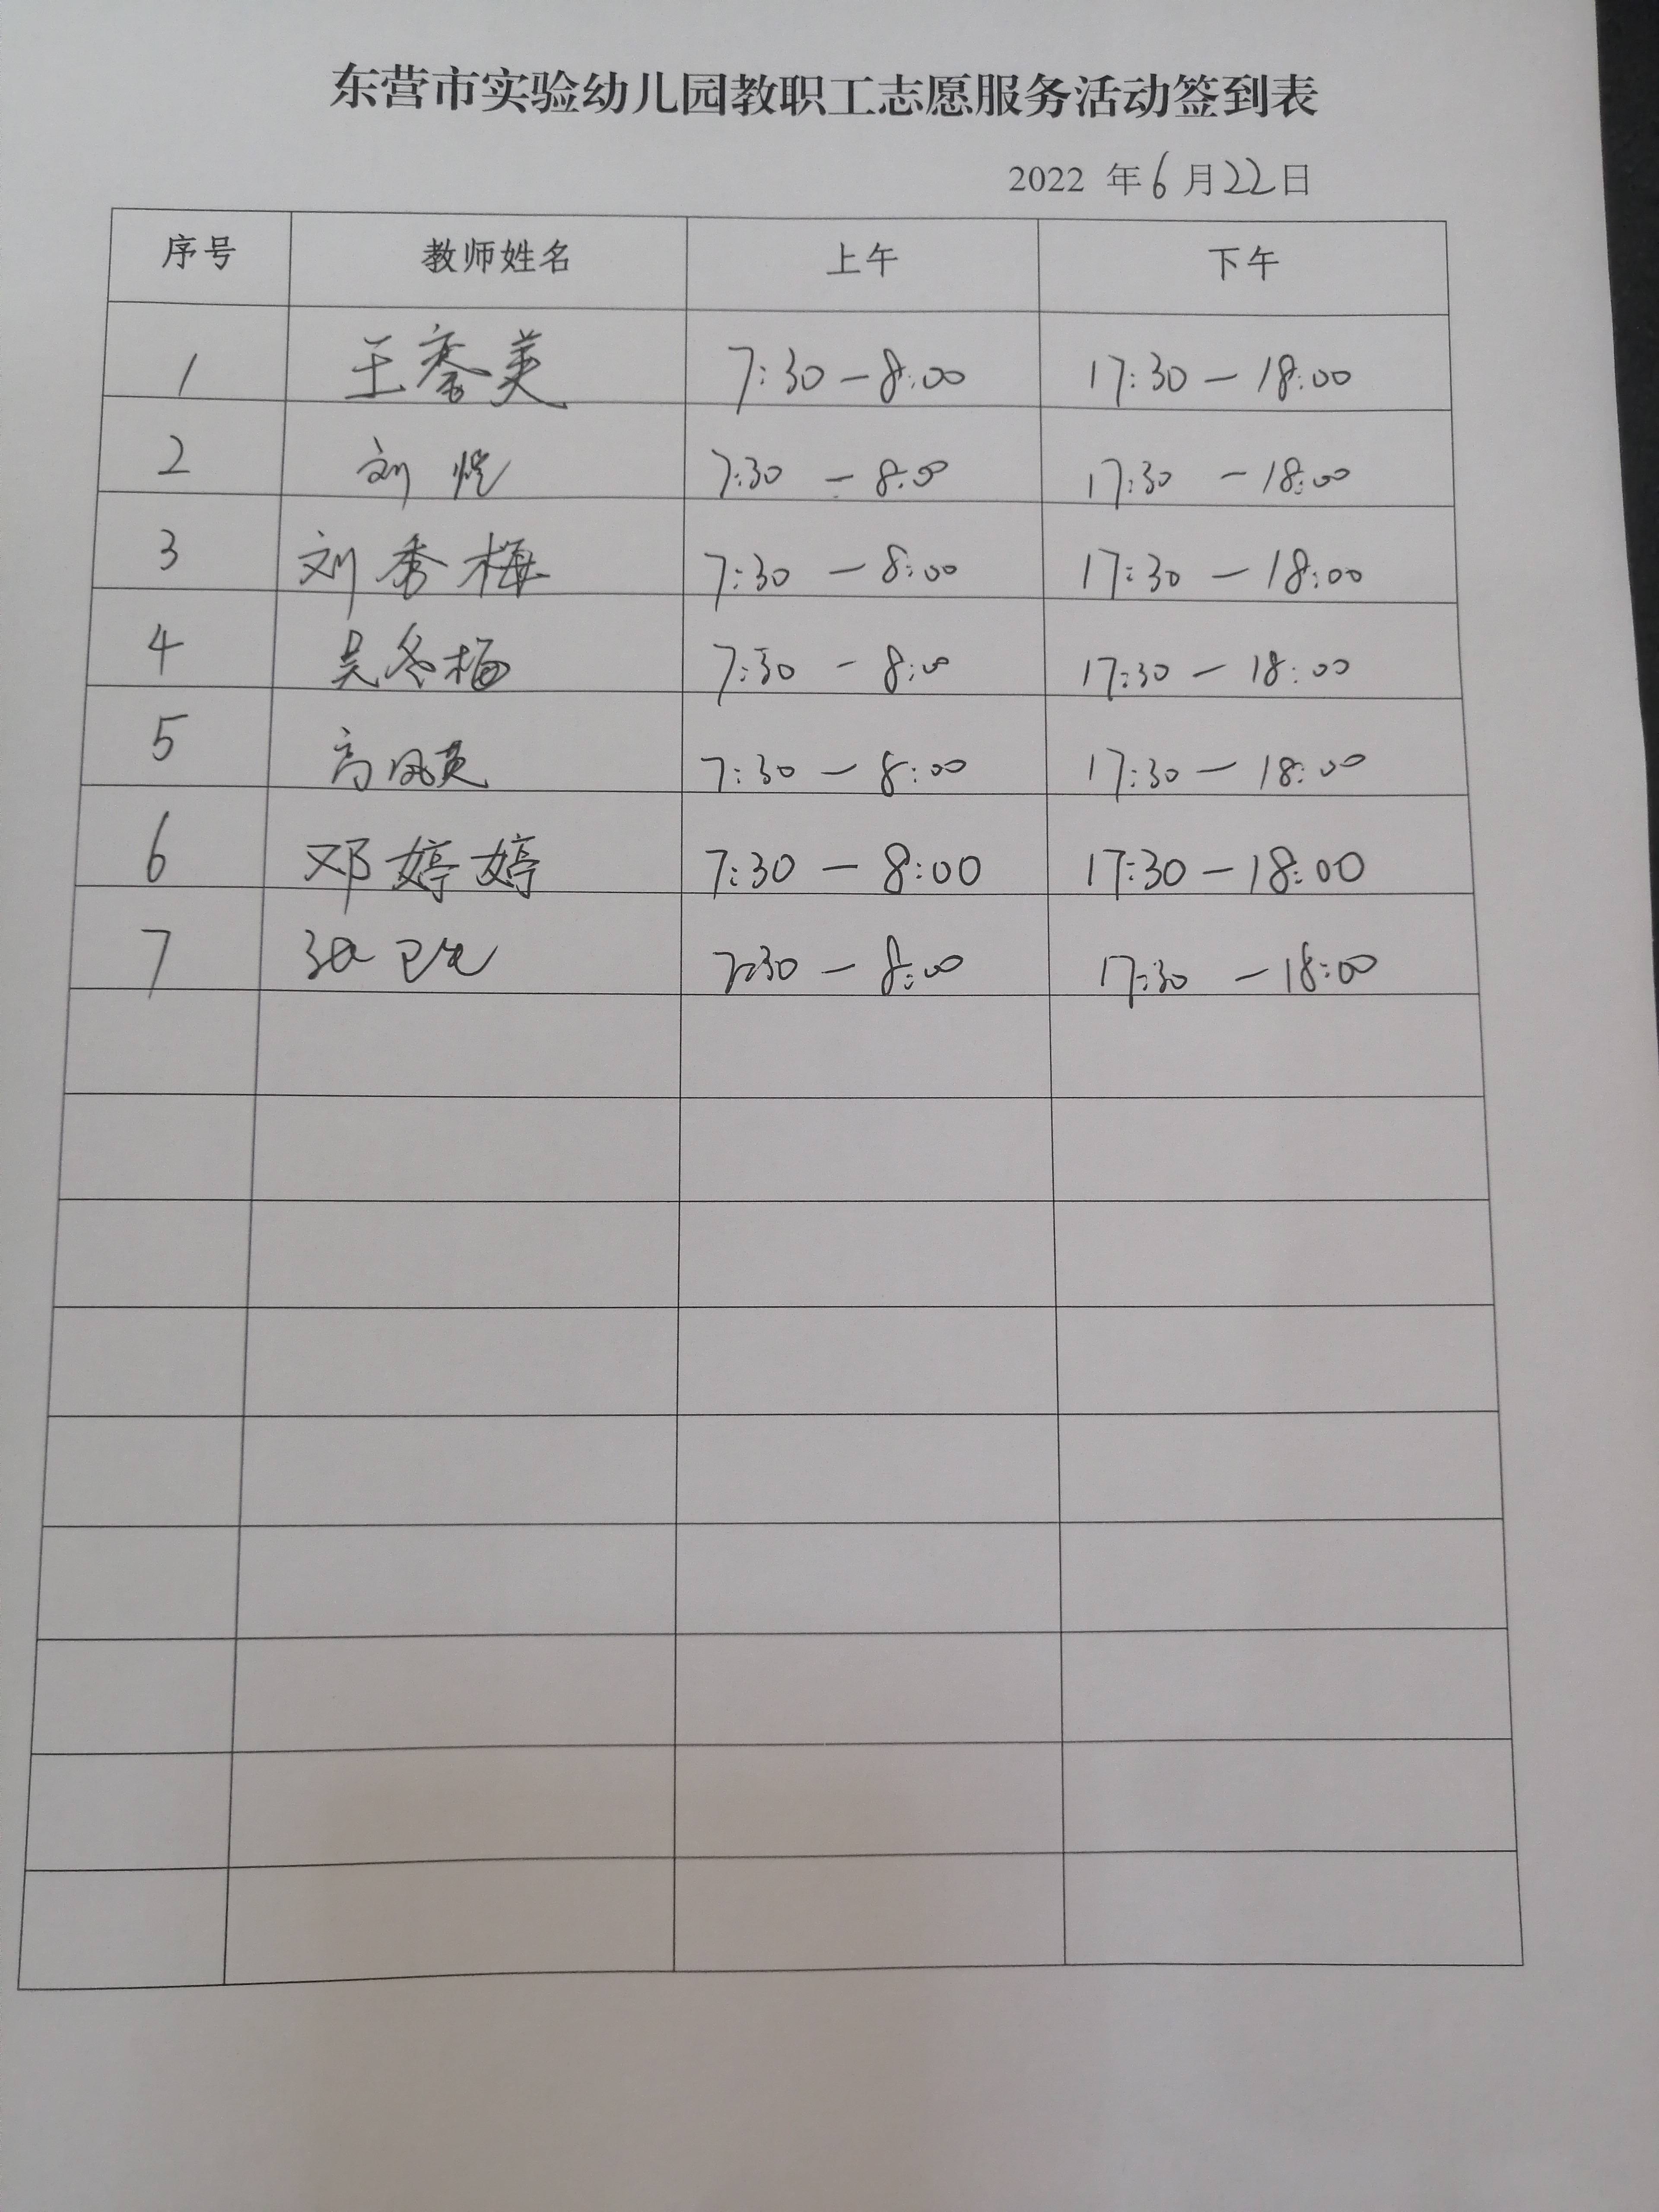 东营市实验幼儿园教职工志愿服务活动签到表
2022 年 6 月 22 日
序号 教师姓名 上午 下午
1 王秀美 7:30 — 8:00 17:30 — 18:00
2 刘 7:30 — 8:00 17:30 — 18:00
3 刘秀梅 7:30 — 8:00 17:30 — 18:00
4 吴冬梅 7:30 — 8:00 17:30 — 18:00
5 高凤英 7:30 — 8:00 17:30 — 18:00
6 邓婷婷 7:30 — 8:00 17:30 — 18:00
7 张卫 7:30 — 8:00 17:30 — 18:00